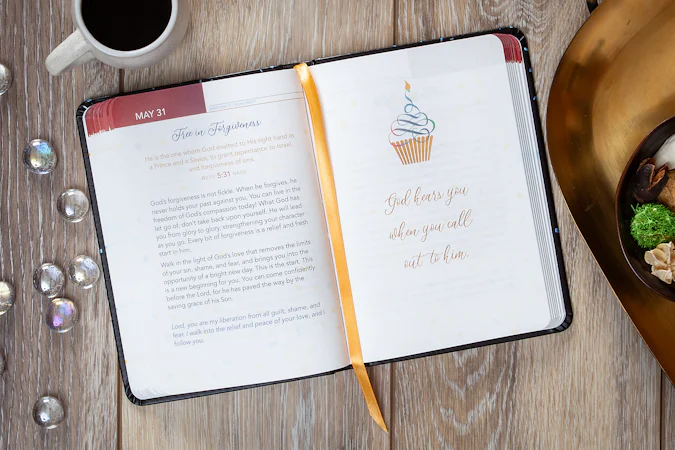 MAY 31
Free in Forgiveness
He is the one whom God exalted to His right hand as
a Prince and a Savior, to grant repentance to Israel,
and forgiveness of sins.
ACTS 5:31 NASB
God's forgiveness is not fickle. When he forgives, he
never holds your past against you. You can live in the
freedom of God's compassion today! What God has
let go of, don't take back upon yourself. He will lead
you from glory to glory, strengthening your character
as you go. Every bit of forgiveness is a relief and fresh
start in him.
Walk in the light of God's love that removes the limits
of your sin, shame, and fear, and brings you into the
opportunity of a bright new day. This is the start. This
is a new beginning for you. You can come confidently
before the Lord, for he has paved the way by the
saving grace of his Son.
Lord, you are my liberation from all guilt, shame, and
fear. I walk into the relief and peace of your love, and I
follow you.
God hears you
when you call
out to him.